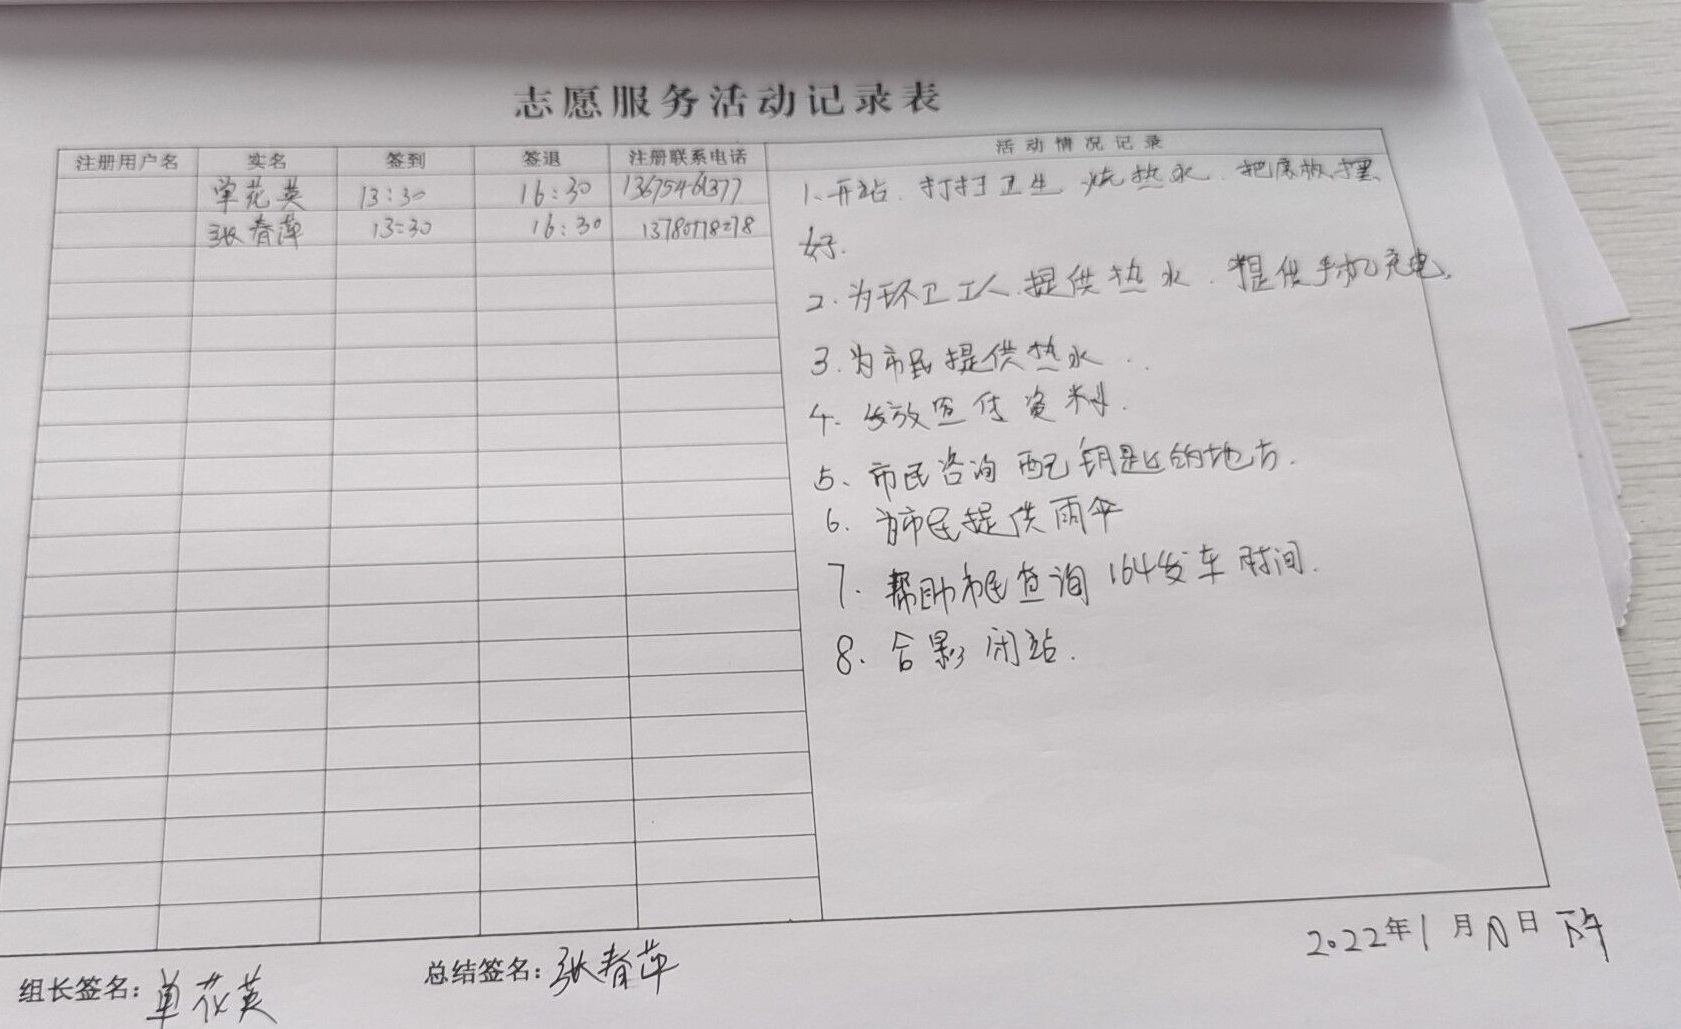 志愿服务活动记录表
注册用户名 实名 签到 签退 注册联系电话 活动情况记录
单花英 13:30 16:30 13675461377
张春萍 13:30 16:30
1、开站.打扫卫生 烧热水.把展板摆
好.
2.为环卫工人提供热水.提供手机充电.
3.为市民提供热水.
4.发放宣传资料.
5、市民咨询配钥匙的地方.
6.为市民提供雨伞
7.帮助市民查询164发车时间.
8.合影闭站.
2022年1月 日 下午
组长签名:单花英 总结签名:张春萍